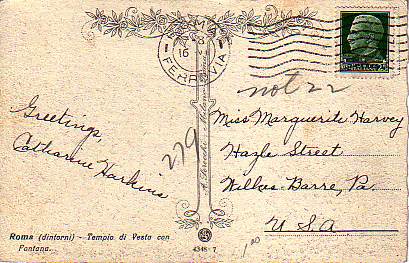 ROMA
16
FERROVIA
not 22
Greetings,
Catharine Harkins
279
Miss Marguerite Harvey
Hazle Street
Wilkes-Barre, Pa.
U.S.A
Roma (dintorni) - Tempio di Vesta con
Fontana.
4348-7
1.00